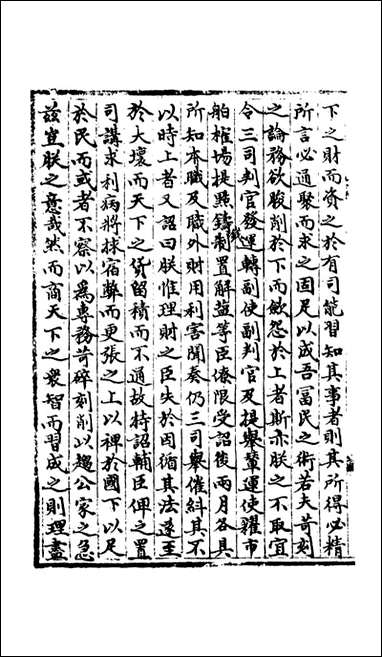 下之財而資之於有司能習知其事者則其所得必精
所言必通聚而求之固足以成吾富民之術若夫苛刻
之論務欲朘削於下而斂怨於上者斯亦朕之不取宜
令三司判官發運轉副使副判官及提舉輦運使糴市
舶榷場提點鑄錢制置解鹽等臣僚限受詔後兩月各具
所知本職及職外財用利害聞奏仍三司舉催糾其不
以時上者又詔曰朕惟理財之臣失於因循其法遂至
於大壞而天下之貨留積而不通故特詔輔臣俾之置
司講求利病將捄宿弊而更張之上以裨於國下以足
於民而或者不察以為專務苛碎刻削以趨公家之急
茲豈朕之意哉然而商天下之衆智而習成之則理盡